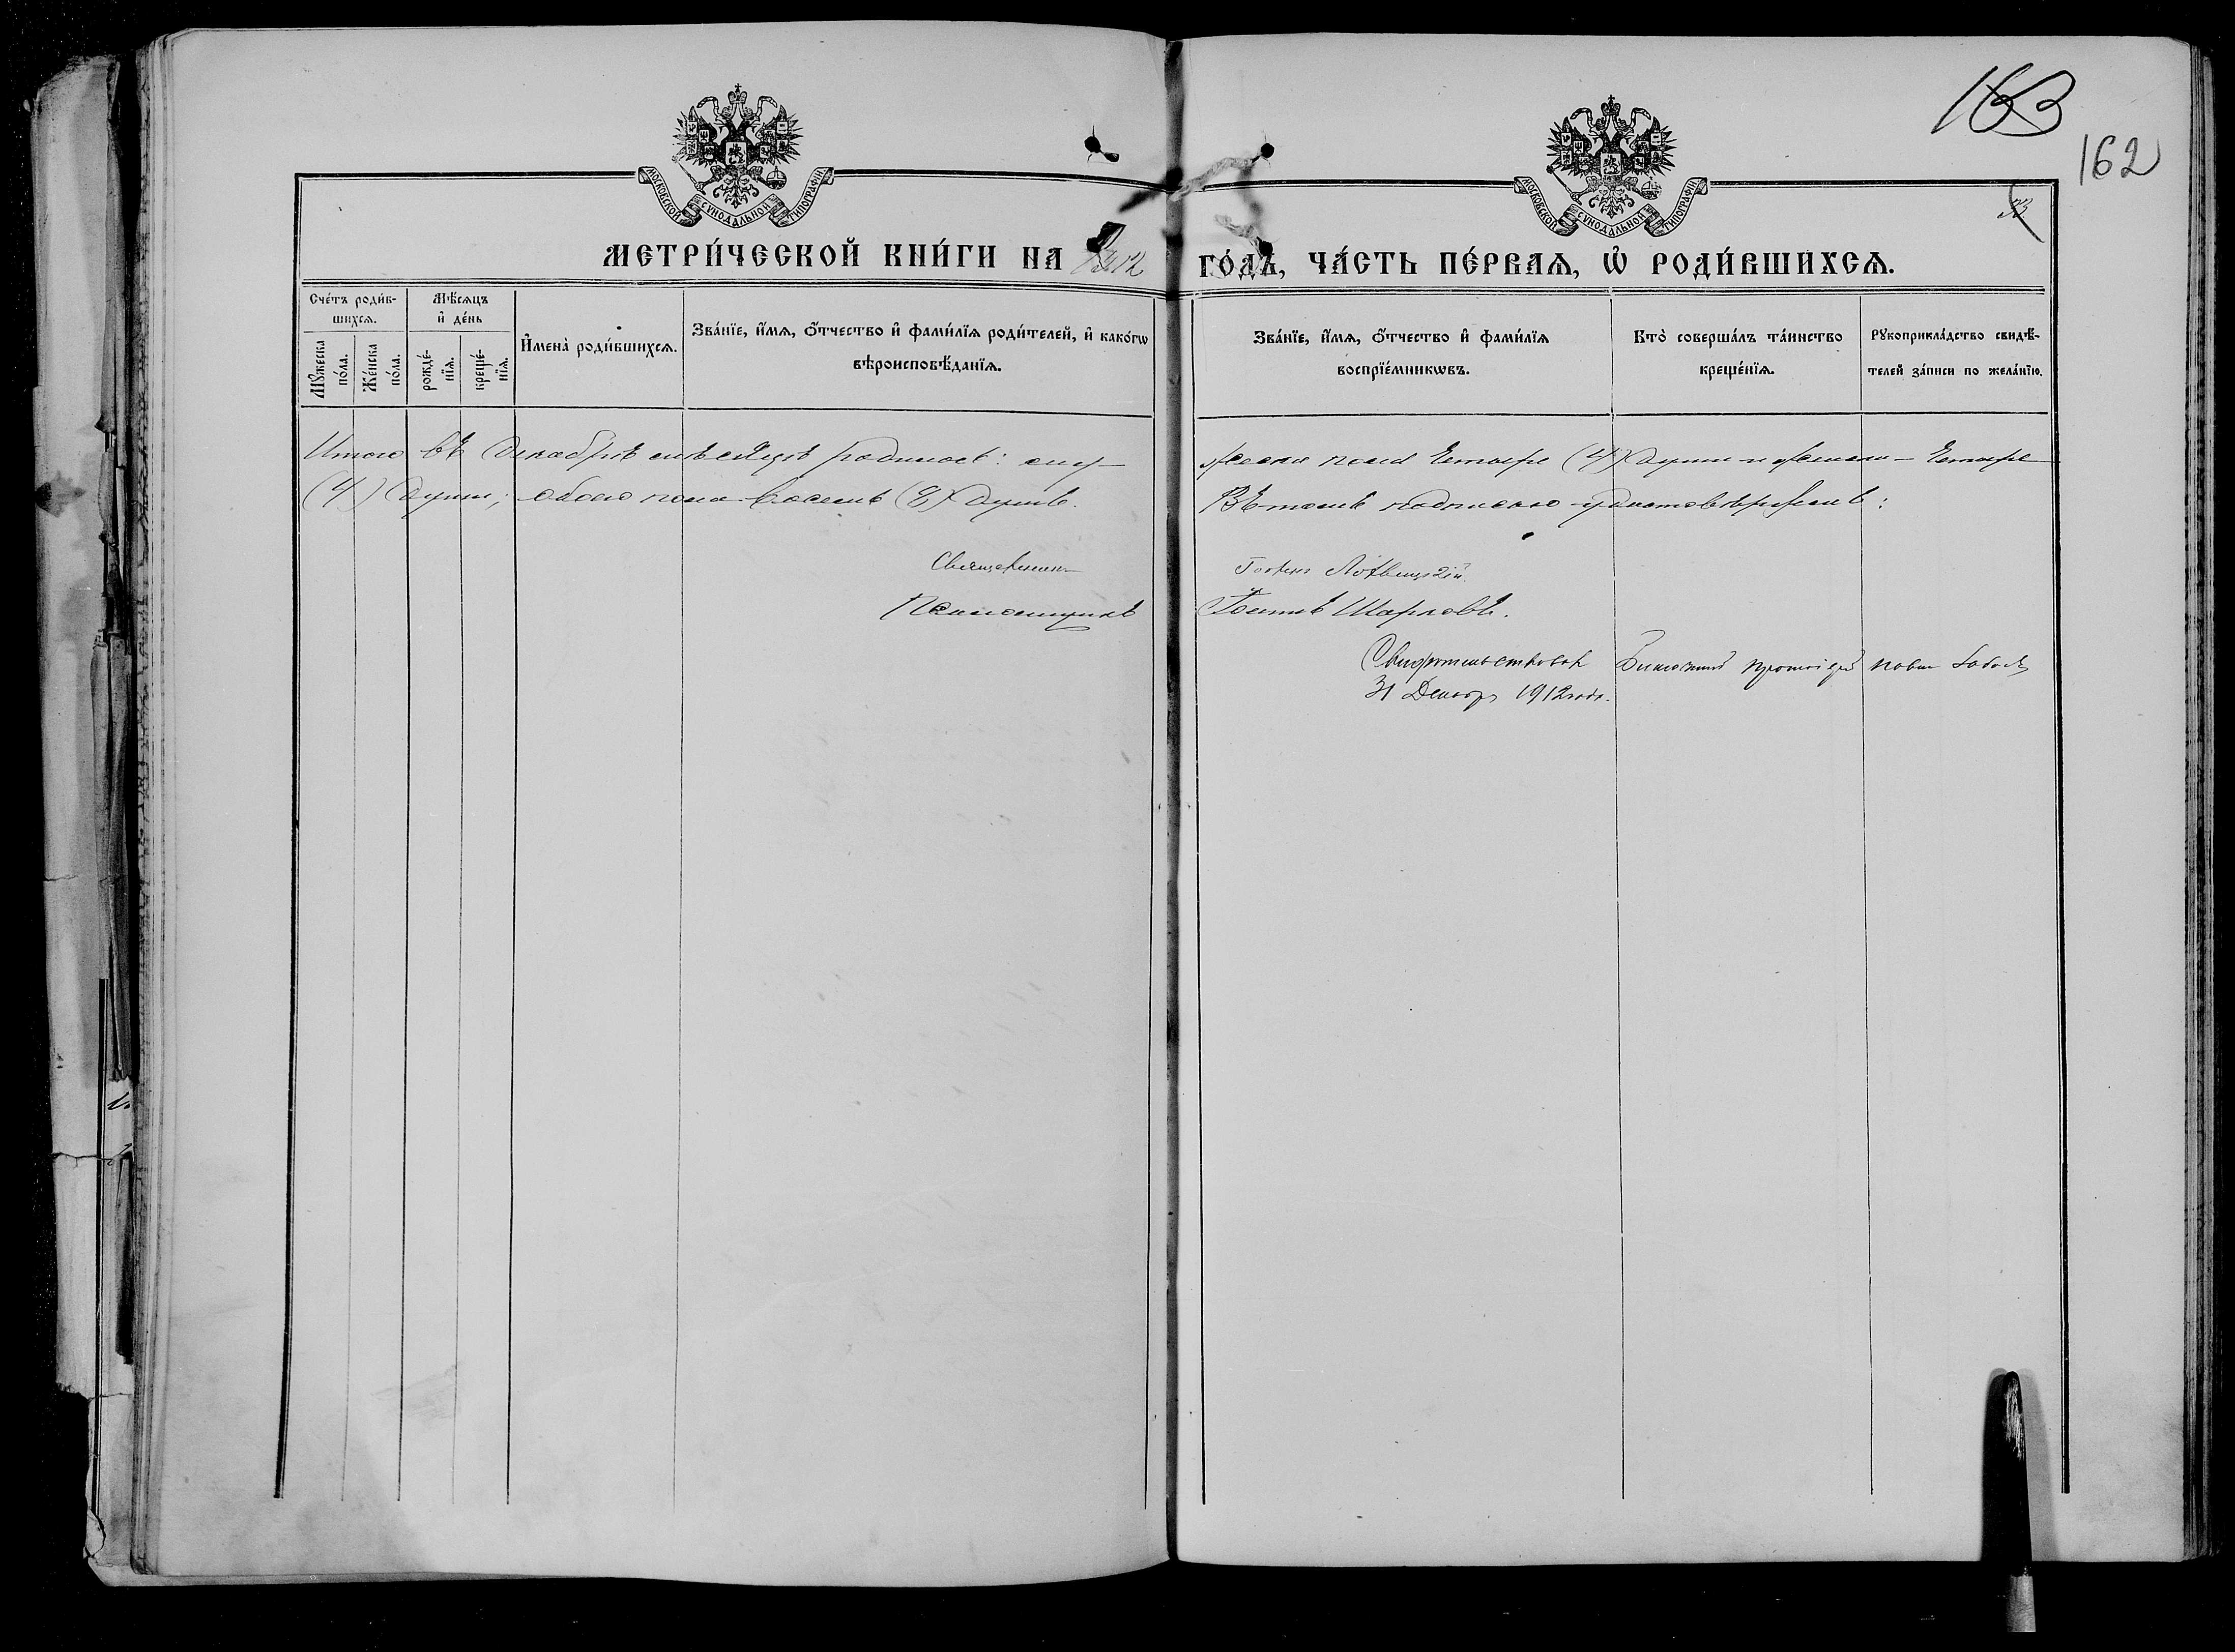 163
162
МОСКОВСКОЙ СУНОДАЛЬНОЙ ТИПОГРАФІИ
МОСКОВСКОЙ СУНОДАЛЬНОЙ ТИПОГРАФІИ
МЕТРИ́ЧЕСКОЙ КНИ́ГИ НА 1912 ГО́ДЪ, ЧА́СТЬ ПЕ́РВАѦ, Ѡ҆ РОДИ́ВШИХСѦ.
Сче́тъ роди́в-
шихсѧ.
Мѣ́сѧцъ
и҆ де́нь
Мꙋ́жеска
по́ла.
Же́нска
по́ла.
рожде́-
нїѧ.
креще́-
нїѧ.
И҆мена̀ роди́вшихсѧ.
Зва́нїе, и҆́мѧ, ѻ҆́тчество и҆ фами́лїѧ роди́телей, и҆ како́гѡ
вѣроисповѣ́данїѧ.
Зва́нїе, и҆́мѧ, ѻ҆́тчество и҆ фами́лїѧ
воспрїе́мникѡвъ.
Кто̀ соверша́лъ та́инство
креще́нїѧ.
Рꙋкоприкла́дство свидѣ́-
телей за́писи по жела́нїю.
Итого въ Декабрѣ мѣсяцѣ родилось: муж-
(4) души; обоего пола восемь (8) душъ.
ческа пола четыре (4) души и женска – четыре
Въ томъ подписью удостовѣряемъ:
Священникъ
Псаломщикъ
Шарковъ.
Свидѣтельствовалъ Благочинный протоіерей
31 Декабря 1912 года.